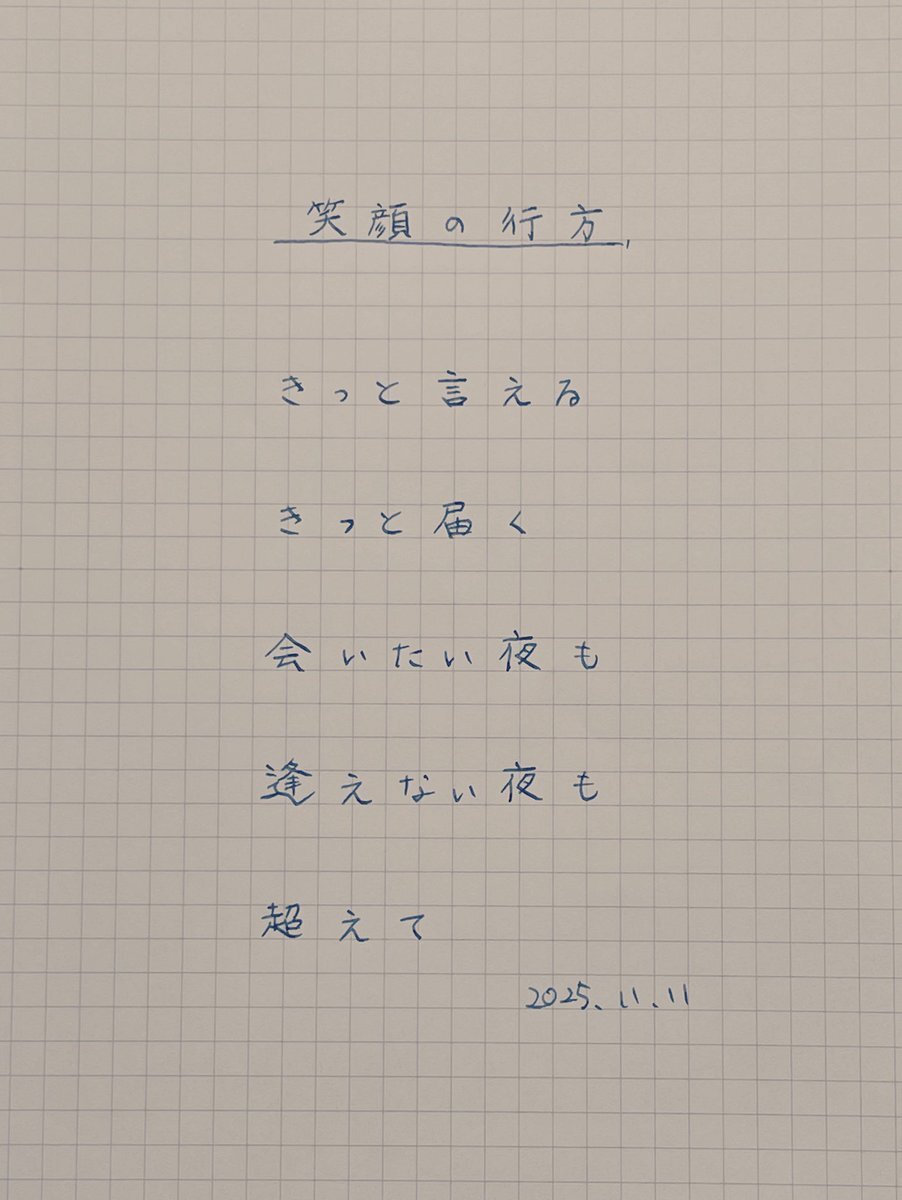 笑顔の行方
きっと言える
きっと届く
会いたい夜も
逢えない夜も
超えて
2025.11.11